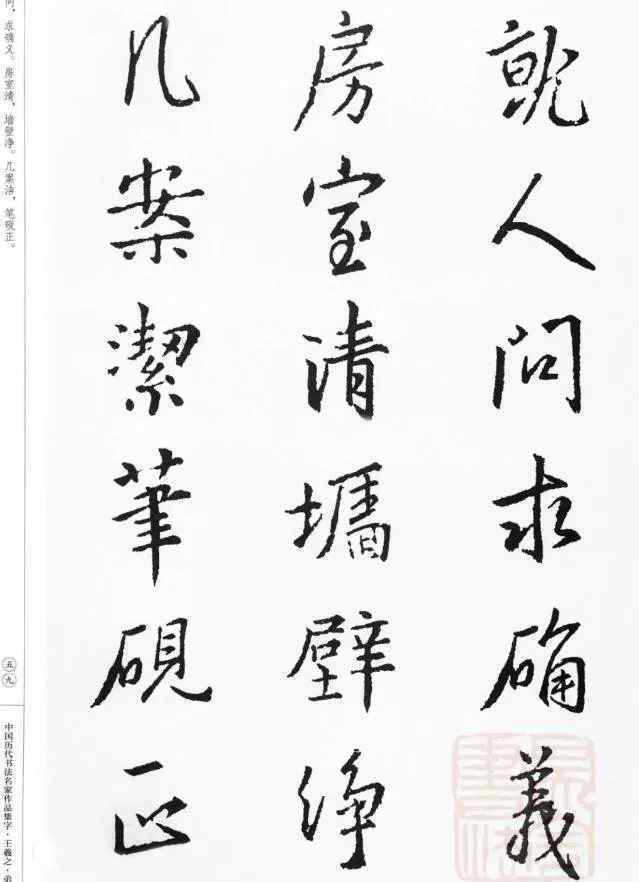 就人問求确義
房室清墻壁淨
几案潔筆硯正
问，求确义。房室清，墙壁净。几案洁，笔砚正。
五九
中国历代书法名家作品集字·王羲之·弟